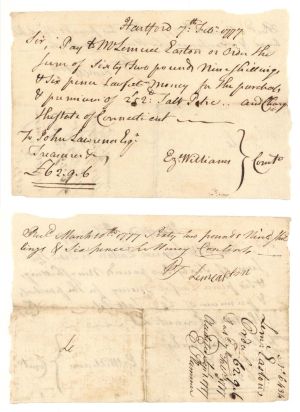 Hartford 7th Feb 1777
Sir, Pay to Mr Lemuel Easton or Order the
sum of Sixty two pounds Nine shillings
& six pence Lawful Money for the purchase
& premium of 252 lb Salt Petre .. and Charge
the State of Connecticut
To John Lawrence Esqr
Treasurer
£62.9.6
Ez Williams } Comte
Recd March 10th 1777 Sixty two pounds Nine Shil
lings & Six pence Money Contents
Lem Easton
Lemll Easton
Order
£62.9.6
1777